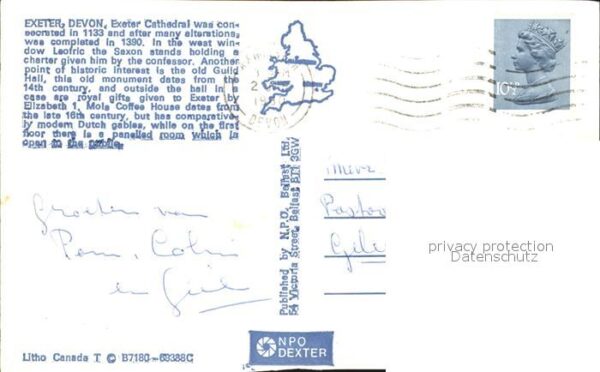 EXETER, DEVON, Exeter Cathedral was con-
secrated in 1133 and after many alterations,
was completed in 1390. In the west win-
dow Leofric the Saxon stands holding a
charter given him by the confessor. Another
point of historic interest is the old Guild
Hall, this old monument dates from the
14th century, and outside the hall in a
case are royal gifts given to Exeter by
Elizabeth 1. Mols Coffee House dates from
the late 16th century, but has comparative-
ly modern Dutch gables, while on the first
floor there is a panelled room which is
open to the public.
DEVON
10½P
Published by N.P.O. Belfast Ltd.
54 Victoria Street, Belfast BT1 3GW
Groeten van
en
Pastoo
privacy protection
Datenschutz
NPO
DEXTER
Litho Canada T © B7180-69388C